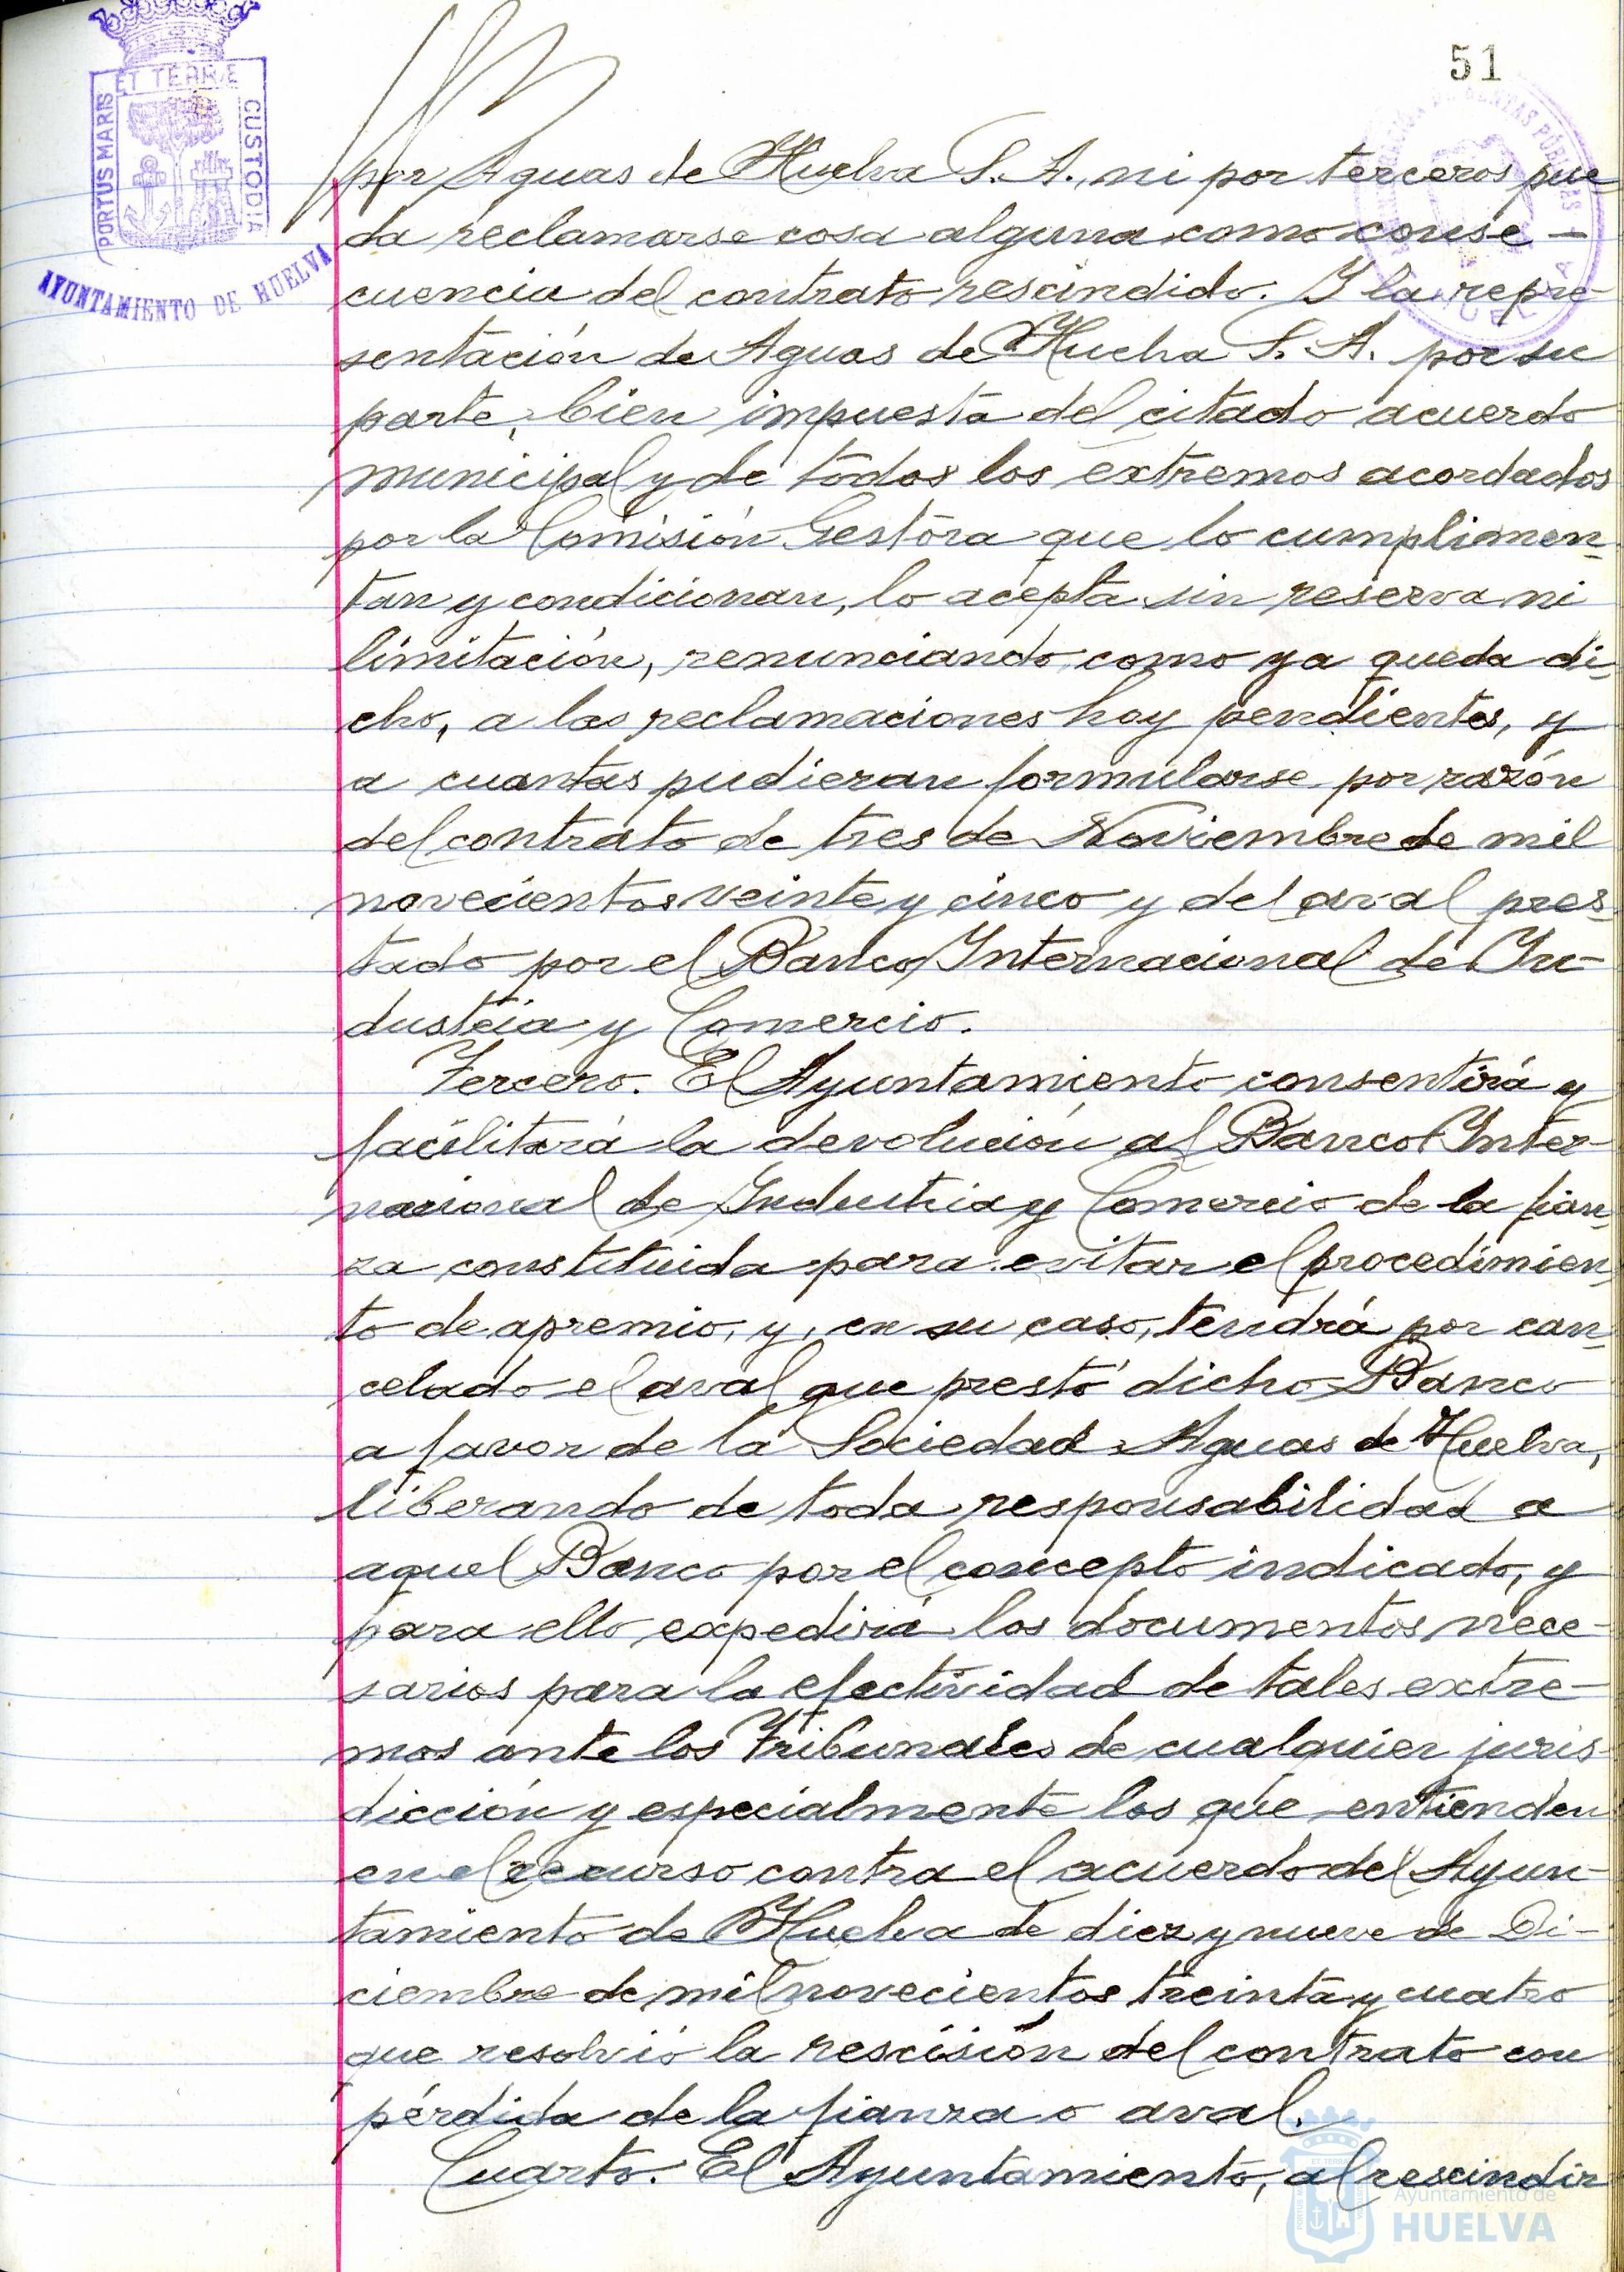 51
ET TERRÆ
PORTUS MARIS
CUSTODIA
AYUNTAMIENTO DE HUELVA
por Aguas de Huelva S. A., ni por terceros pue
da reclamarse cosa alguna como conse-
cuencia del contrato rescindido. Y la repre-
sentación de Aguas de Huelva S. A. por su
parte, bien impuesta del citado acuerdo
municipal y de todos los extremos acordados
por la Comisión Gestora que lo cumplimen-
tan y condicionan, lo acepta sin reserva ni
limitación, renunciando, como ya queda di-
cho, a las reclamaciones hoy pendientes, y
a cuantas pudieran formularse por razón
del contrato de tres de Noviembre de mil
novecientos veinte y cinco y del aval pres
tado por el Banco Internacional de In-
dustria y Comercio.
Tercero. El Ayuntamiento consentirá y
facilitará la devolución al Banco Inter-
nacional de Industria y Comercio de la fian-
za constituida para evitar el procedimien
to de apremio, y, en su caso, tendrá por can-
celado el aval que prestó dicho Banco
a favor de la Sociedad Aguas de Huelva,
liberando de toda responsabilidad a
aquel Banco por el concepto indicado, y
para ello expedirá los documentos nece-
sarios para la efectividad de tales extre-
mos ante los Tribunales de cualquier juris-
dicción y especialmente los que entienden
en el recurso contra el acuerdo del Ayun-
tamiento de Huelva de diez y nueve de Di-
ciembre de mil novecientos treinta y cuatro
que resolvió la rescisión del contrato con
pérdida de la fianza o aval.
Cuarto. El Ayuntamiento, al rescindir
Ayuntamiento de
HUELVA